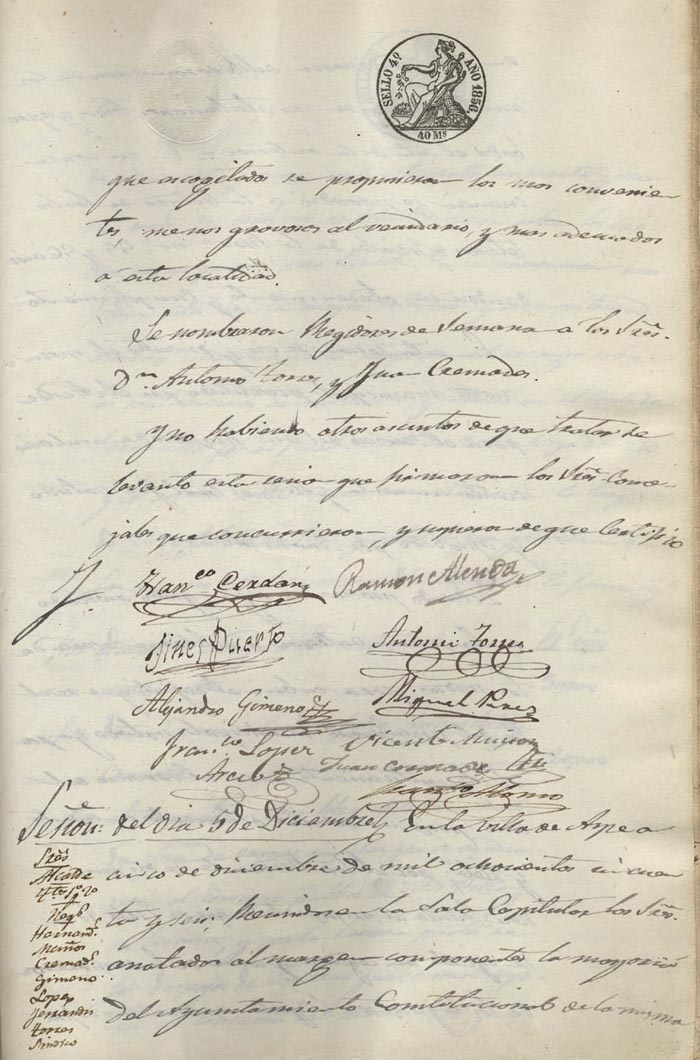 SELLO 4º AÑO 1856.
40 Ms
que escogitados se propusieran los mas convenien-
tes, menos gravosos al vecindario, y mas adecuados
a esta localidad.
Se nombraron Regidores de Semana a los Sres.
Dn Antonio Torres, y Juan Cremades.
y no habiendo otros asuntos de que tratar se
levanto esta sesion que firmaron los Sres Conce-
jales que concurrieron, y supieron de que Certifico
Franco Cerdan
Ramon Alenda
Gines Puerto
Antonio Torres
Alejandro Gimeno
Miguel Perez
Franco Lopez
Vicente Muñoz
Arcibº
Juan Cremades
Señon del dia 5 de Diciembre En la Villa de Aspe a
cinco de diciembre de mil ochocientos cincuen
ta y seis: Reunidos en la Sala Capitular los Sres.
anotados al margen componentes la mayoria
del Ayuntamiento Constitucional de la misma
Sres
Alcalde
Ttes 1º 2º
Regs
Hernand.
Muños
Cremads
Gimeno
Lopez
Torres
Sindico